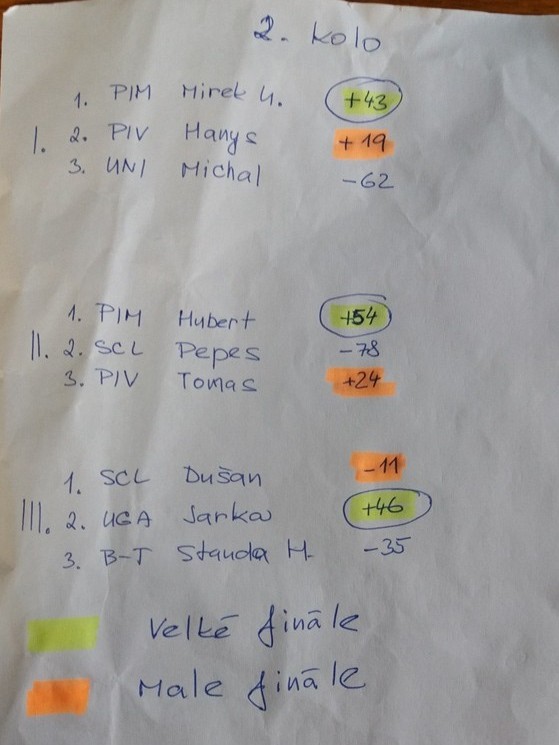 2. kolo
1. PIM Mirek U. +43
I. 2. PIV Hanys +19
3. UNI Michal -62
1. PIM Hubert +54
II. 2. SCL Pepes -78
3. PIV Tomas +24
1. SCL Dušan -11
III. 2. UGA Jarka +46
3. B-J Standa H. -35
Velké finále
Male finále